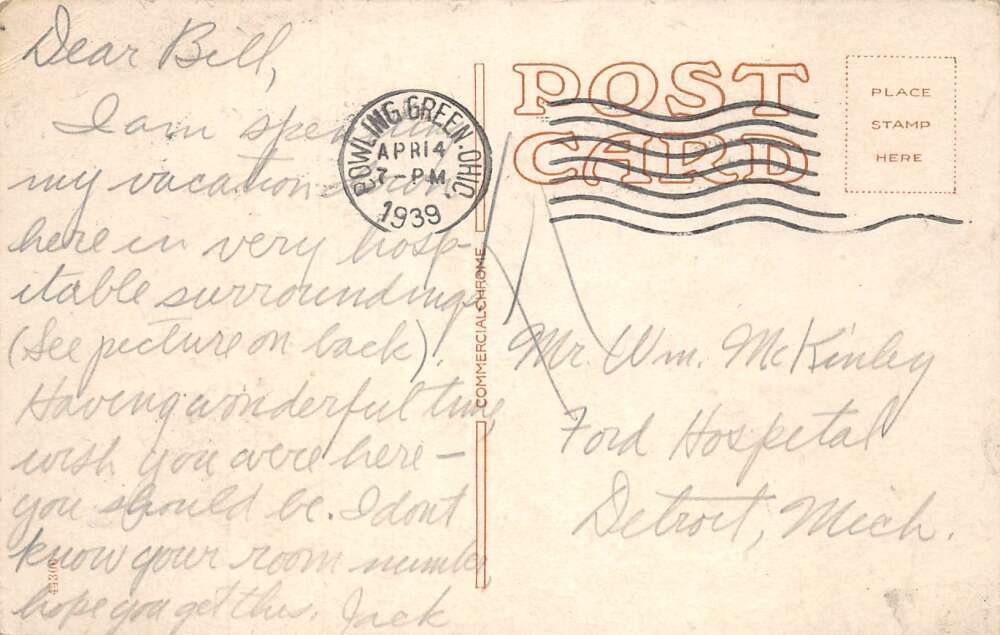 Dear Bill,
I am spending
my vacation
here in very hosp-
itable surroundings
(See picture on back).
Having wonderful time,
wish you were here –
you should be. I dont
know your room number,
hope you get this. Jack
BOWLING GREEN, OHIO
APR 14
7-PM
1939
COMMERCIALCHROME
POST
CARD
PLACE
STAMP
HERE
Mr. Wm. McKinley
Ford Hospital
Detroit, Mich.